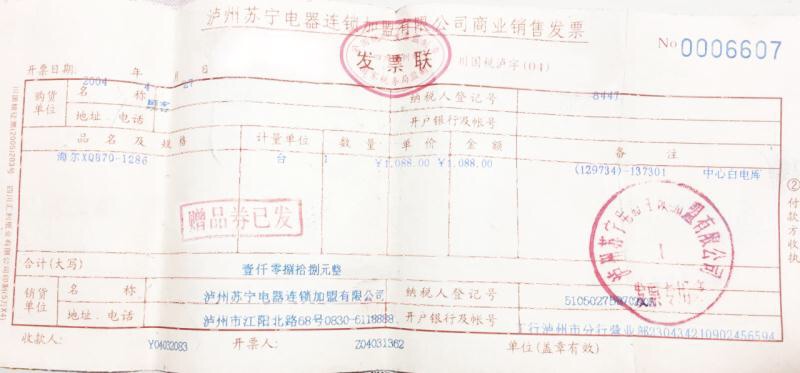 泸州苏宁电器连锁加盟有限公司商业销售发票
发票联
川国税泸字(04)
No 0006607
开票日期: 2004 年 4 月 27 日
购货单位
名称 顾客
纳税人登记号 8447
地址、电话
开户银行及帐号
品名及规格 计量单位 数量 单价 金额 备注
海尔XQB70-1286 台 1 ¥1,088.00 ¥1,088.00 (129734)-137301 中心白电库
赠品券已发
②付款方收执
合计(大写) 壹仟零捌拾捌元整
销货单位
名称 泸州苏宁电器连锁加盟有限公司
纳税人登记号
地址、电话 泸州市江阳北路68号0830-6118888
开户银行及帐号 工行泸州市分行营业部230434210902456594
收款人: Y04032083 开票人: Z04031362 单位(盖章有效)